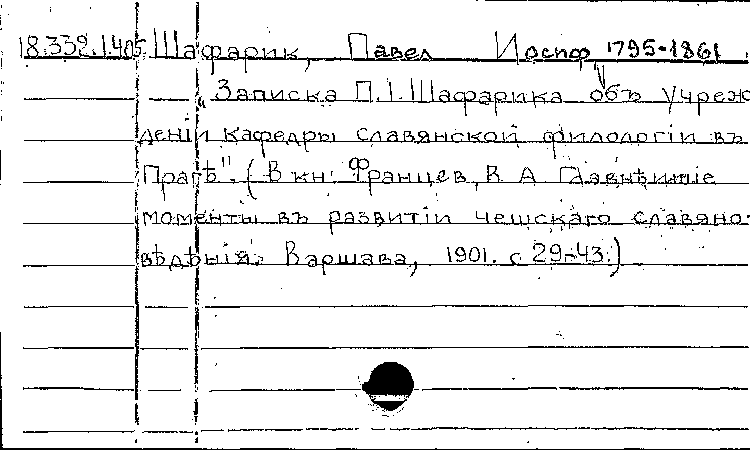 18.332.1.405 Шафарик, Павел Иосиф 1795-1861
„Записка П.I.Шафарика объ учреж
деніи кафедры славянской филологіи въ
Прагѣ". (В кн: Францев, В А Главнѣишіе
моменты въ развитіи чешскаго славяно-
вѣдѣнія. Варшава, 1901. с 29-43.)